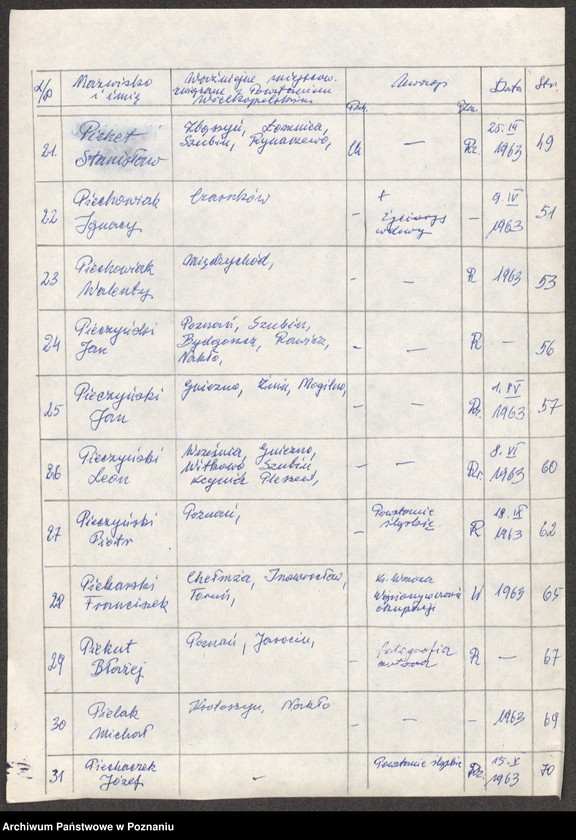 L/p Nazwisko i imię Ważniejsze miejscow. związane z Powstaniem Wielkopolskim Uwagi Data Str.
21. Piehet Stanisław Zbąszyń, Łomnica, Szubin, Rynarzewo, — Rz. 25. III 1963 49
22 Piechowiak Ignacy Czarnków - + Życiorys wdowy — 9. IV 1963 51
23 Piechowiak Walenty Międzychód, - — R 1963 53
24 Pieczyński Jan Poznań, Szubin, Bydgoszcz, Rawicz, Nakło, - — R — 56
25 Pieczyński Jan Gniezno, Żnin, Mogilno, - — Rz. 1. IV 1963 57
26 Pieczyński Leon Września, Gniezno, Witkowo Szubin, Kcynia Pleszew, - — Rz. 8. VI 1963 60
27 Pieczyński Piotr Poznań, - Powstanie śląskie R 18. IX 1963 62
28 Piekarski Franciszek Chełmża, Inowrocław, Toruń, W 1963 65
29 Piekut Błażej Poznań, Jarocin, - R — 67
30 Pielak Michał Krotoszyn, Nakło - — - 1963 69
31 Piechaczek Józef - Powstanie śląskie Rz. 15. X 1963 70
Archiwum Państwowe w Poznaniu